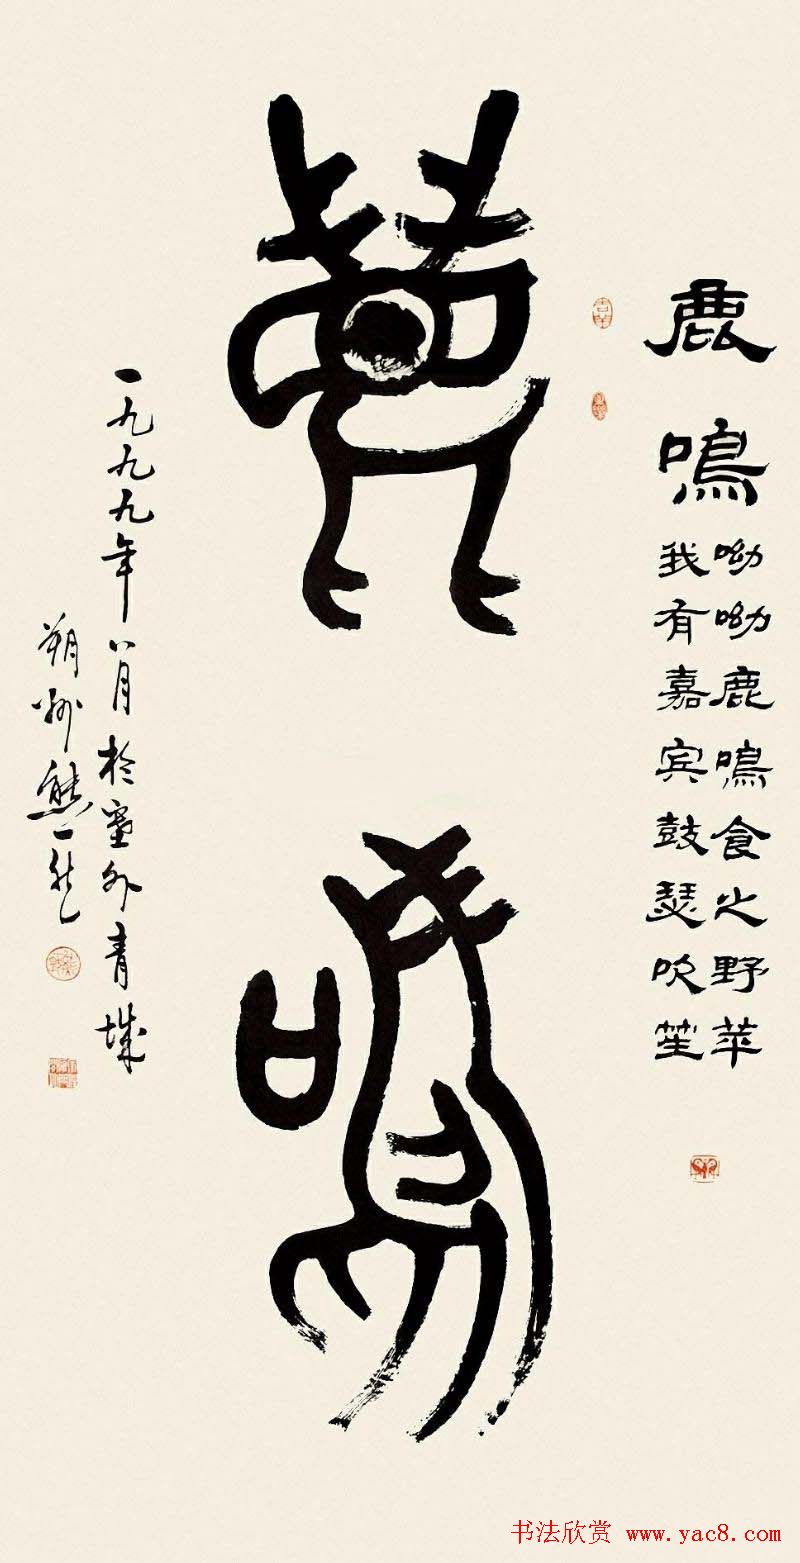 鹿鳴
呦呦鹿鳴食之野苹
我有嘉宾鼓瑟吹笙
鹿鳴
一九九九年八月於塞外青城
朔州熊一
书法欣赏 www.yac8.com